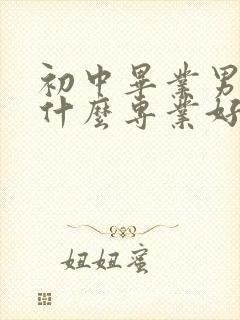 初中畢業男
什麼專業好
妞妞蜜